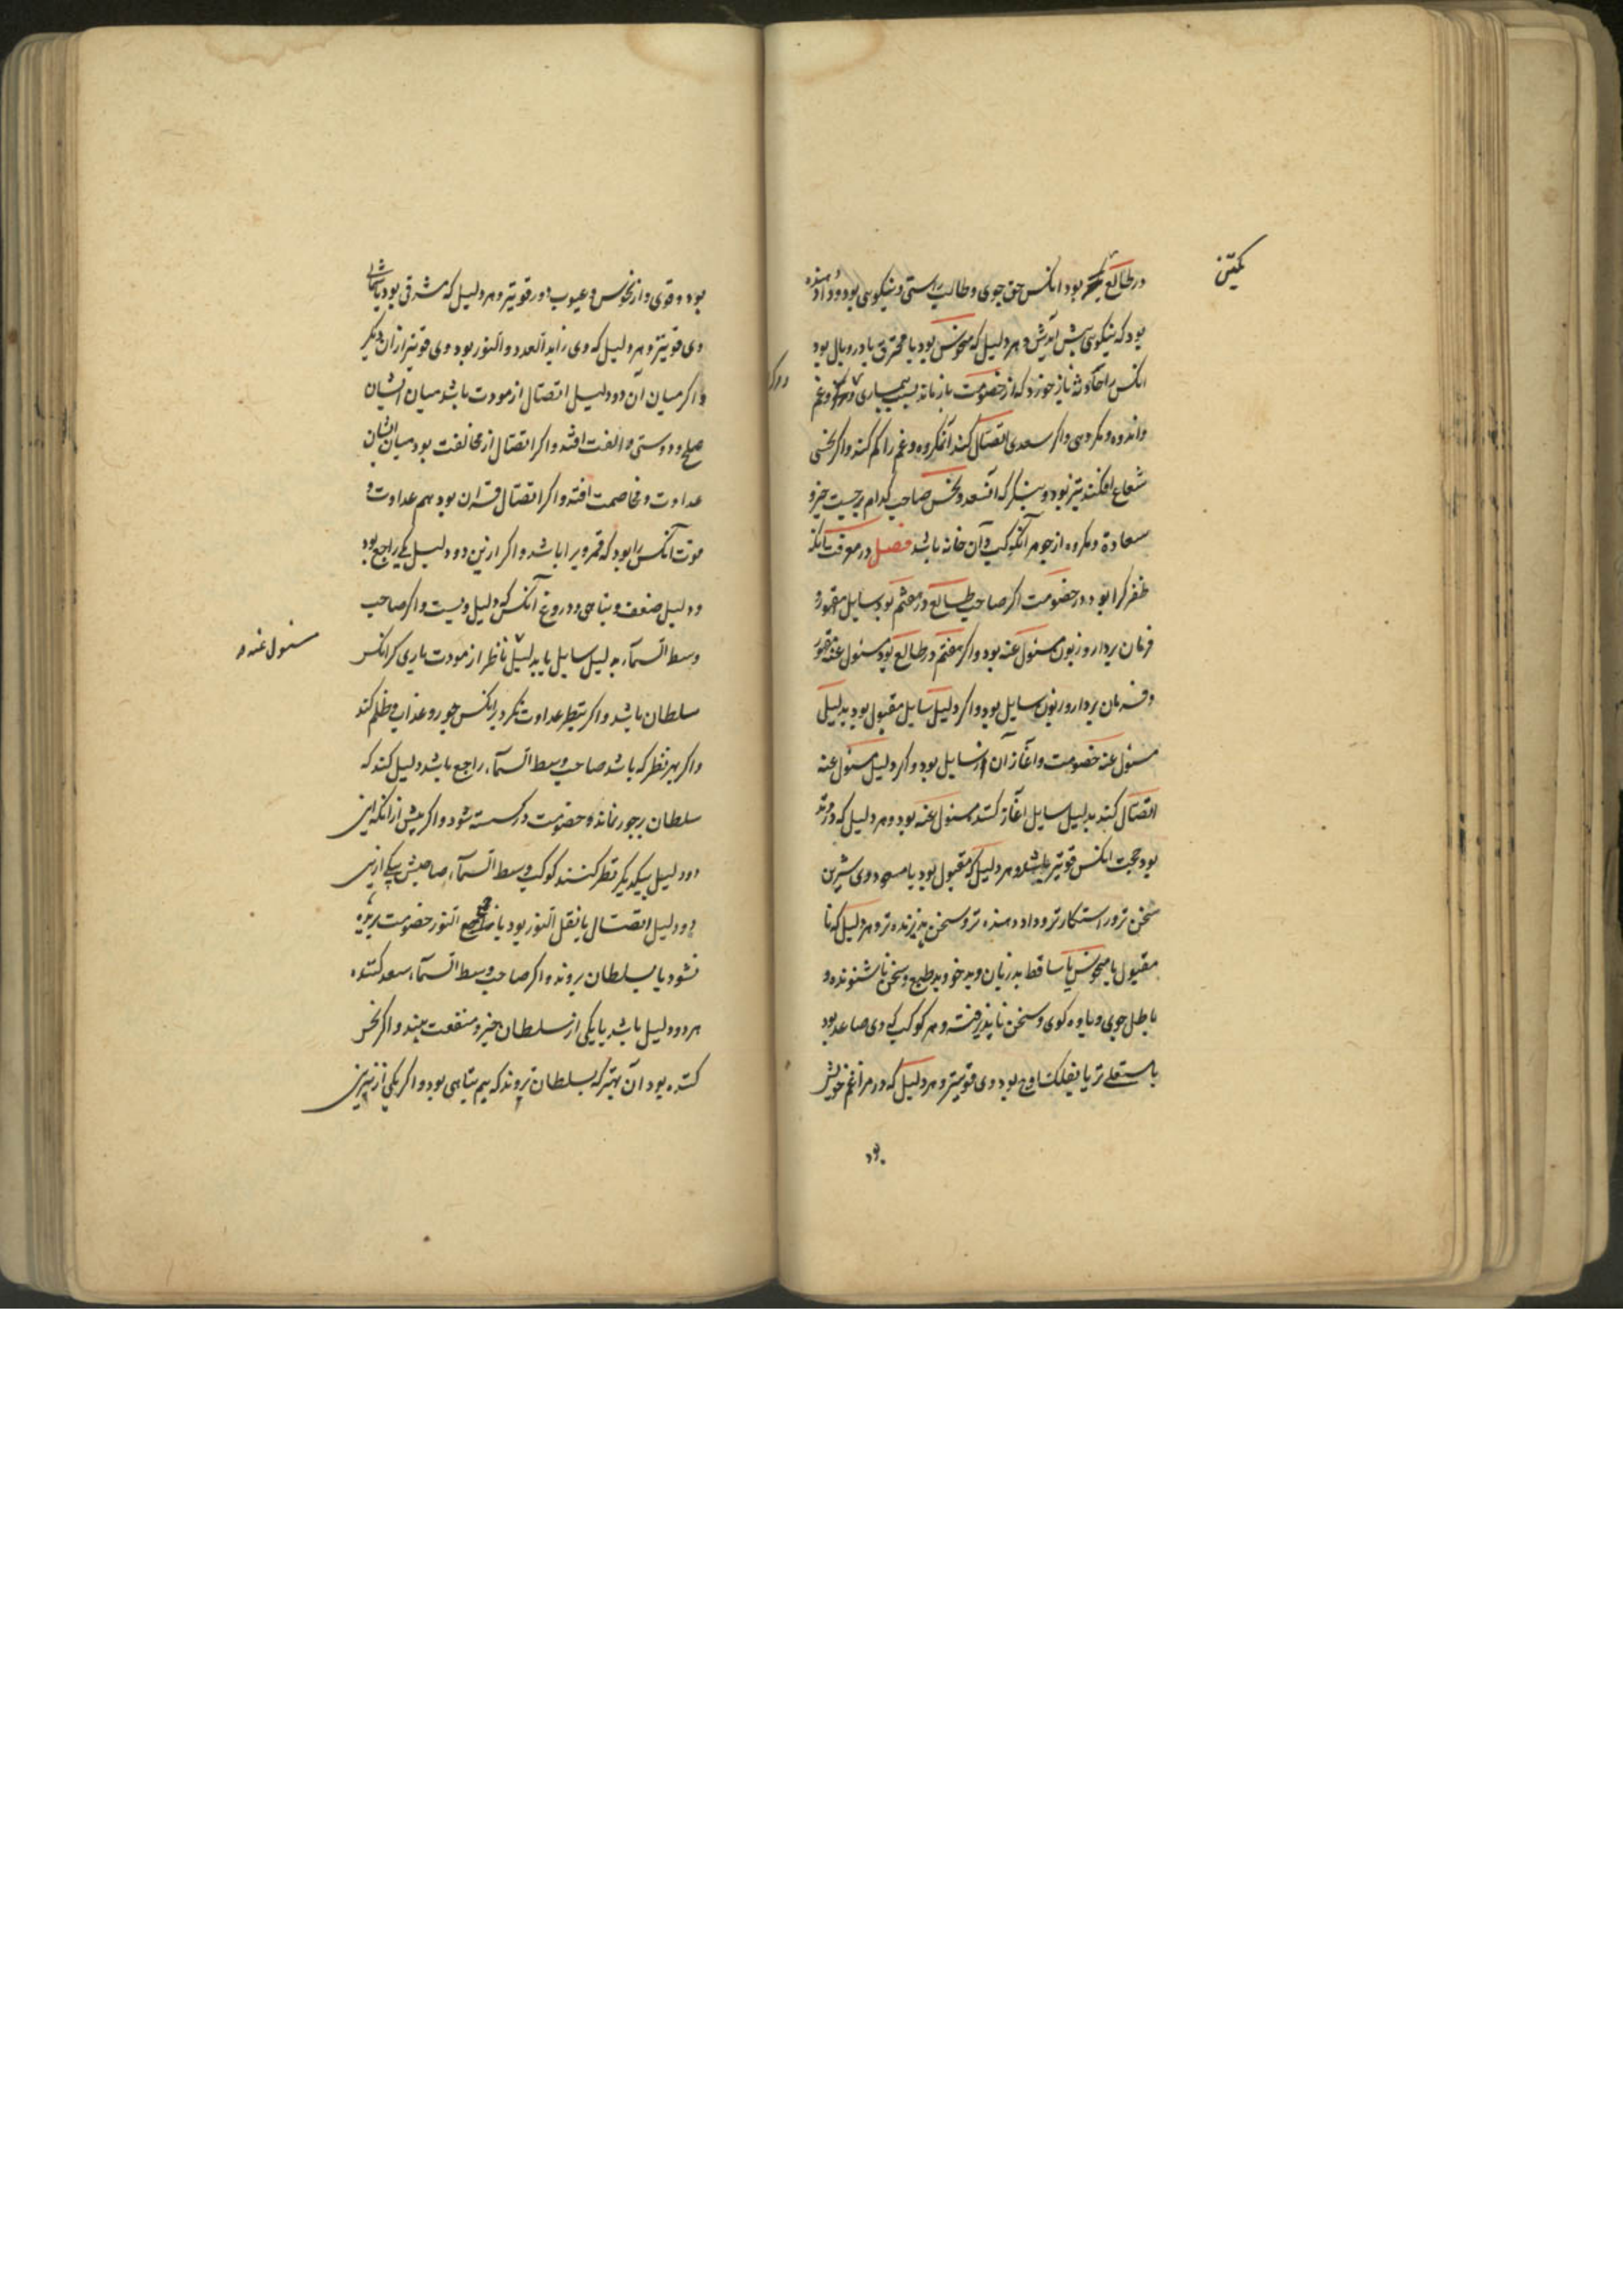 در طالع بود انکس حق جوی و طالب راستی و نیکویی بود و داد دهنده
بود که نیکویی پیش آیدش و هر دلیل که منحوس بود یا محترق یا در وبال بود
انکس را حادثه باز خورد که از خصومت باز ماند بسبب بیماری و غم
واندوه و مکروهی واکر سعدی اتصال کند آن مکروه و غم را کم کند واکر نحسی
شعاع افکند بتر بود و بنکر که آن سعد و نحس صاحب کدام برجست خیر و
سعادة و مکروه از جوهر آنکوکب و آن خانه باشد فصل در معرفت آنکه
ظفر کرا بود در خصومت اکر صاحب طالع در هفتم بود سایل مقهور و
فرمان بردار و زبون مسئول عنه بود واکر هفتم در طالع بود مسئول عنه مقهور
و فرمان بردار و زبون سایل بود واکر دلیل سایل مقبول بود بدلیل
مسئول عنه خصومت و آغاز آن از سایل بود واکر دلیل مسئول عنه
اتصال کند بدلیل سایل آغاز کننده مسئول عنه بود و هر دلیل که در وتد
بود حجت انکس قویتر باشد و هر دلیل که مقبول بود یا مسعود وی شیرین
سخن تر و راستکارتر و داد دهنده تر و سخن پذیرنده تر و هر دلیل که نا
مقبول یا منحوس یا ساقط بد زبان و بد خو و بد طبع و سخن ناشنونده و
باطل جوی و یاوه کوی و سخن ناپذیرفته و هر کوکب که وی صاعد بود
یا مستعلی تر یا بفلک اوج بود وی قویتر و هر دلیل که در مراغم خویش
بود
بود و قوی و از نحوس و عیوب دور قویتر و هر دلیل که مشرقی بود یا شمالی
وی قویتر و هر دلیل که وی زاید العدد و النور بود وی قویتر از ان دیکر
واکر میان آن دو دلیل اتصال از مودت باشد میان ایشان
صلح و دوستی و الفت افتد واکر اتصال از مخالفت بود میان ایشان
عداوت و مخاصمت افتد واکر اتصال قران بود هم عداوت و
قوت آنکس را بود که قمر ویرا باشد واکر ازین دو دلیل یکی راجع بود
دلیل ضعف و تباهی و دروغ آنکس که دلیل ویست واکر صاحب
وسط السماء بدلیل سایل یا بدلیل ناظر از مودت یاری کر انکس
مسئول عنه
سلطان باشد واکر بنظر عداوت نکرد بر انکس جور و عذاب و ظلم کند
واکر بهر نظر که باشد صاحب وسط السماء راجع باشد دلیل کند که
سلطان رجور نماند و خصومت در کسسته شود واکر پیش از انکه این
دو دلیل بیکدیکر نظر کنند کوکب وسط السماء صاحبش بیکی از این
دو دلیل اتصال یا نقل النور بود یا جمع النور خصومت بریده
نشود یا بسلطان روند و اکر صاحب وسط السماء سعد کننده
هر دو دلیل باشد یا یکی از سلطان خیر و منفعت بیند واکر نحس
کننده بود آن بهتر که بسلطان نروند که بیم تباهی بود واکر یکی از نیرین